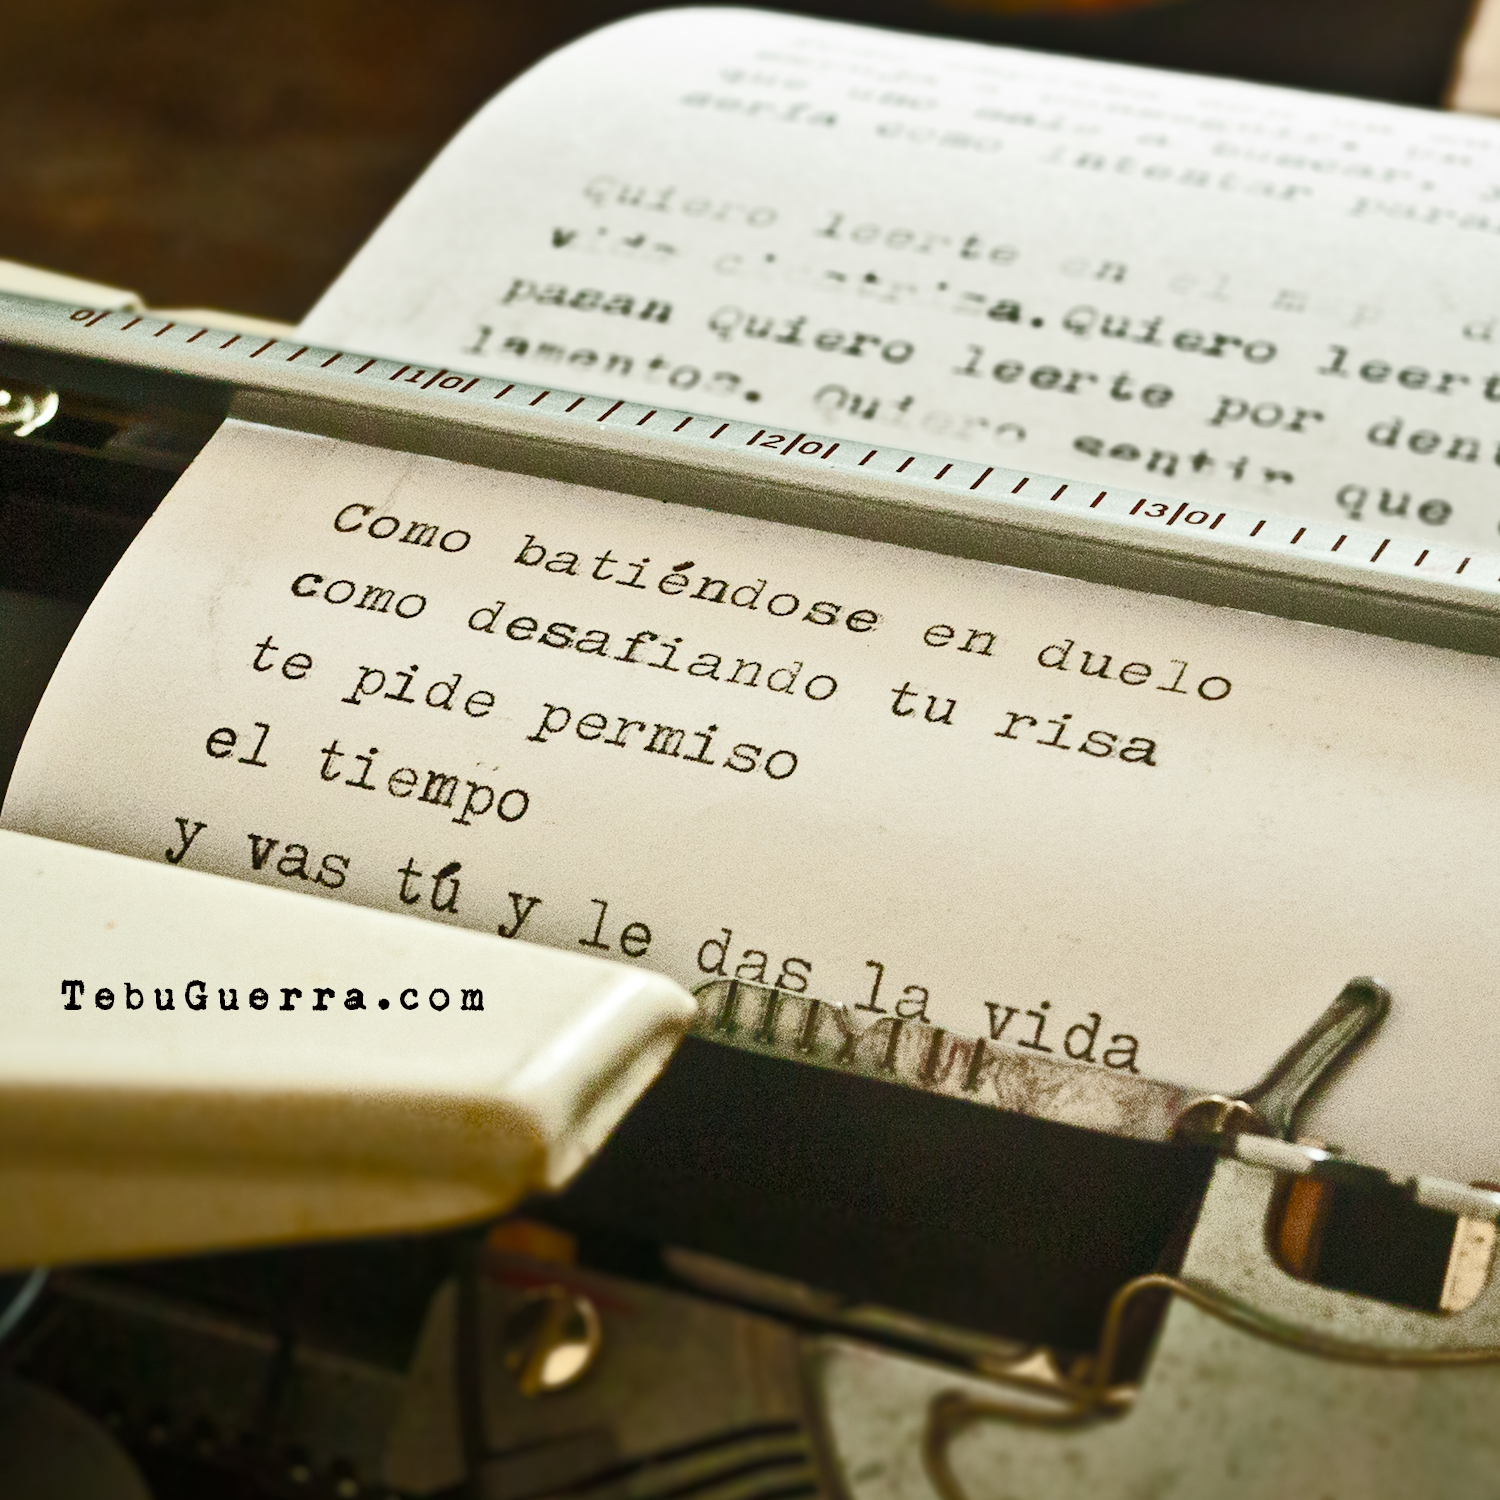 que uno sale a buscar, y
sería como intentar para
Quiero leerte en el m p d
vida cicatriza. Quiero leert
pasan Quiero leerte por dent
lamentos. Quiero sentir que
0 10 20 30
Como batiéndose en duelo
como desafiando tu risa
te pide permiso
el tiempo
y vas tú y le das la vida
TebuGuerra.com